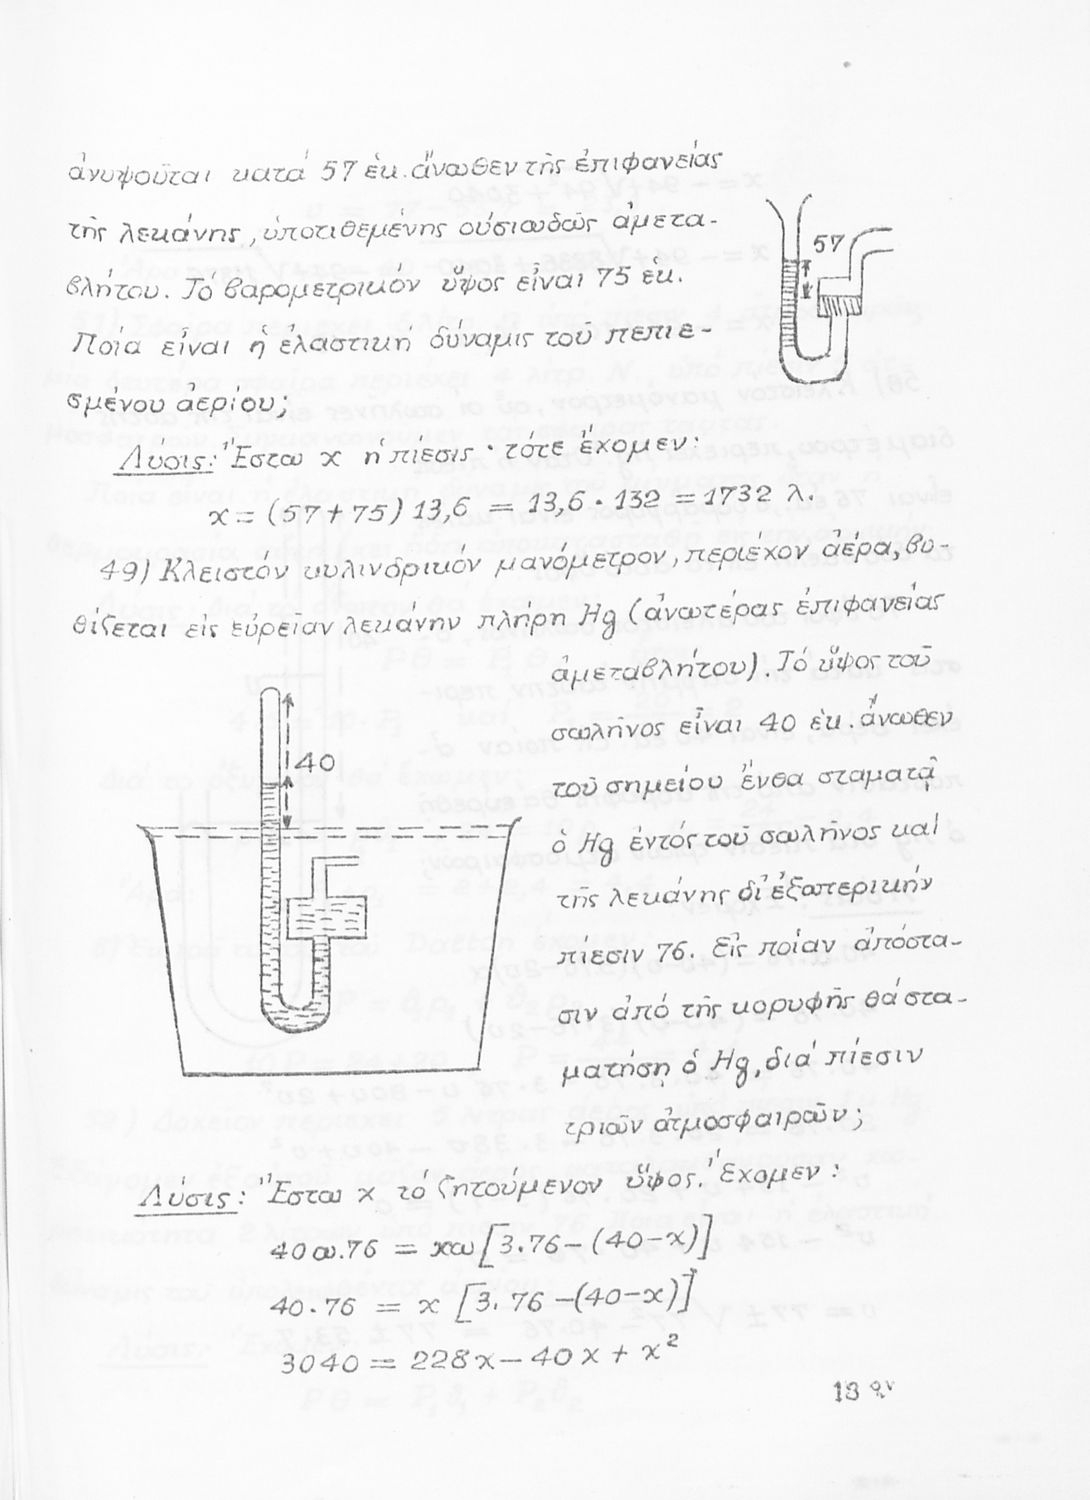 ἀνυψοῦται κατά 57 ἑκ. ἄνωθεν τῆς ἐπιφανείας
τῆς λεκάνης, ὑποτιθεμένης οὐσιωδῶς ἀμετα-
βλήτου. Τό βαρομετρικόν ὕψος εἶναι 75 ἑκ.
Ποία εἶναι ἡ ἐλαστική δύναμις τοῦ πεπιε-
σμένου ἀερίου;
57
Λύσις: Ἔστω x ἡ πίεσις· τότε ἔχομεν:
x = (57 + 75) 13,6 = 13,6 · 132 = 1732 λ.
49) Κλειστόν κυλινδρικόν μανόμετρον, περιέχον ἀέρα, βυ-
θίζεται εἰς εὐρεῖαν λεκάνην πλήρη Hg (ἀνωτέρας ἐπιφανείας
ἀμεταβλήτου). Τό ὕψος τοῦ
σωλῆνος εἶναι 40 ἑκ. ἄνωθεν
τοῦ σημείου ἔνθα σταματᾷ
ὁ Hg ἐντός τοῦ σωλῆνος καί
τῆς λεκάνης δι' ἐξωτερικήν
πίεσιν 76. Εἰς ποίαν ἀπόστα-
σιν ἀπό τῆς κορυφῆς θά στα-
ματήσῃ ὁ Hg, διά πίεσιν
τριῶν ἀτμοσφαιρῶν;
40
Λύσις: Ἔστω x τό ζητούμενον ὕψος. Ἔχομεν:
40ω.76 = xω [3.76 - (40-x)]
40·76 = x [3.76 - (40-x)]
3040 = 228x - 40x + x²
13